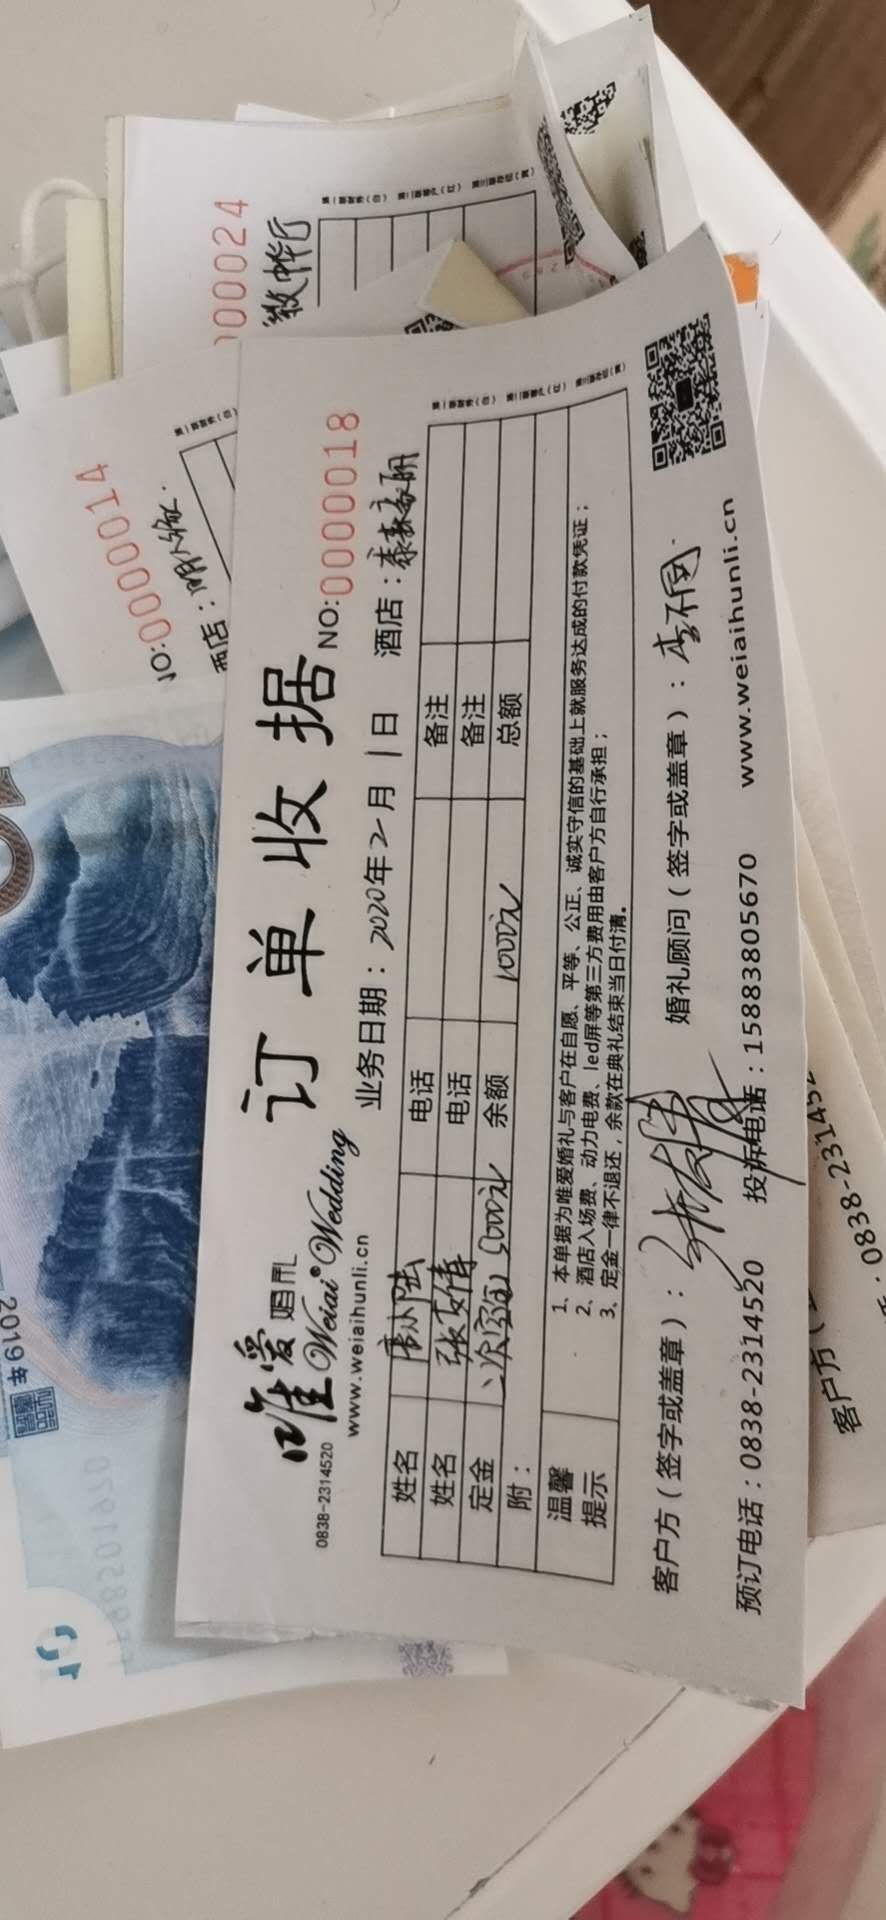 唯爱婚礼
Weiai®Wedding
0838-2314520
www.weiaihunli.cn
订单收据
NO:0000018
业务日期：2020年2月1日
酒店：泰森豪丽
第一联财务（白）
第二联客户（红）
第三联存档（黄）
姓名 电话 备注
姓名 张文倩 电话 备注
定金 5000元 余额 1000元 总额
附：
温馨提示
1、本单据为唯爱婚礼与客户在自愿、平等、公正、诚实守信的基础上就服务达成的付款凭证；
2、酒店入场费、动力电费、led屏等第三方费用由客户方自行承担；
3、定金一律不退还，余款在典礼结束当日付清。
客户方（签字或盖章）：
婚礼顾问（签字或盖章）：
预订电话：0838-2314520 投诉电话：15883805670 www.weiaihunli.cn
NO:0000014
酒店：
000024
第一联财务（白）
第二联客户（红）
第三联存档（黄）
客户方（
：0838-23145
：0838
2019年